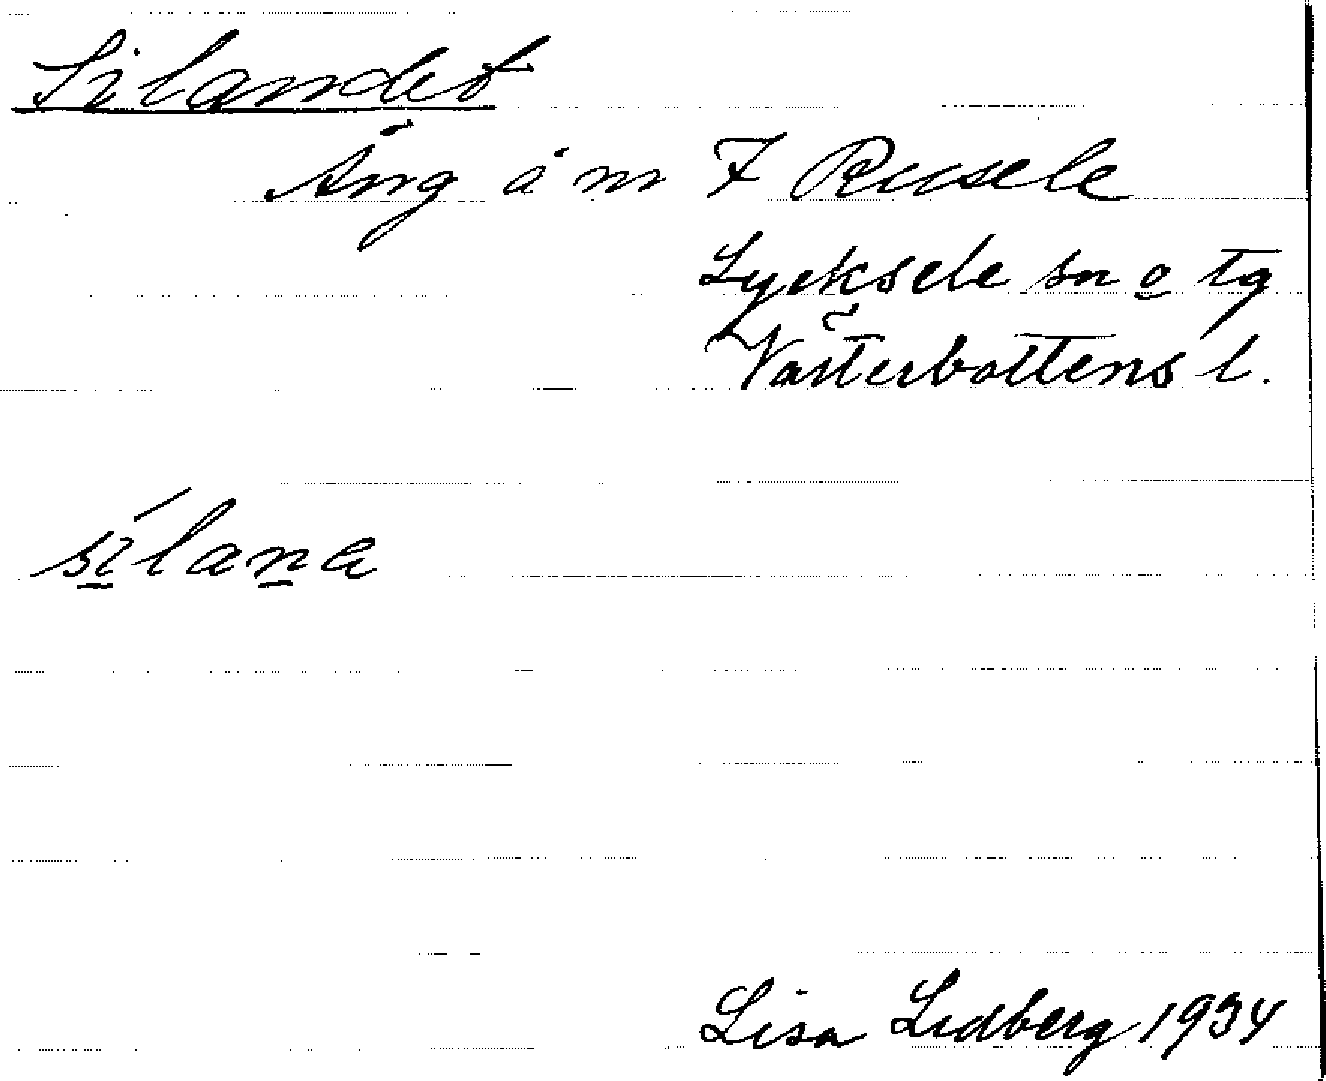 Silandet
Äng å nr 7 Rusele
Lycksele sn o tg
Västerbottens l.
sílana
Lisa Lidberg 1934